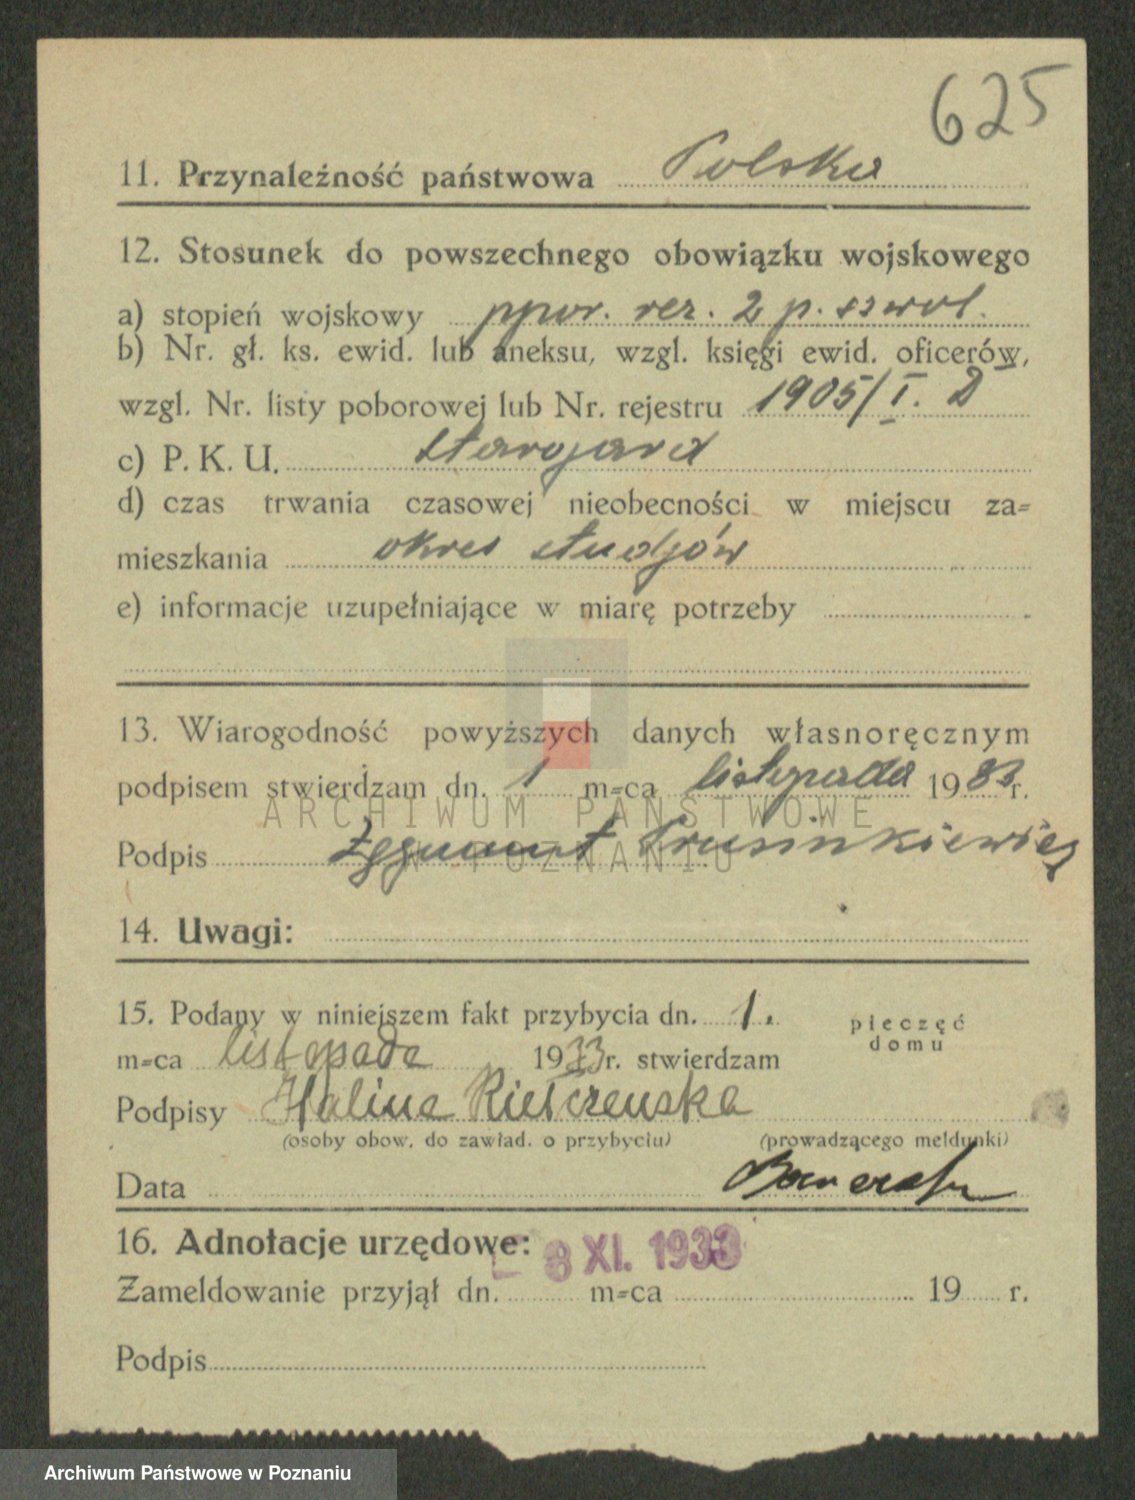 625
11. Przynależność państwowa Polska
12. Stosunek do powszechnego obowiązku wojskowego
a) stopień wojskowy ppor. rez. 2 p. szwol.
b) Nr. gł. ks. ewid. lub aneksu, wzgl. księgi ewid. oficerów,
wzgl. Nr. listy poborowej lub Nr. rejestru 1905/I. D
c) P. K. U. Starogard
d) czas trwania czasowej nieobecności w miejscu za=
mieszkania okres studjów
e) informacje uzupełniające w miarę potrzeby
13. Wiarogodność powyższych danych własnoręcznym
podpisem stwierdzam dn. 1 m=ca listopada 1933 r.
ARCHIWUM PAŃSTWOWE
Podpis Zygmunt Prusinkiewicz
W POZNANIU
14. Uwagi:
15. Podany w niniejszem fakt przybycia dn. 1.
pieczęć
domu
m=ca listopada 1933 r. stwierdzam
Podpisy Halina Kiełczewska
(osoby obow. do zawiad. o przybyciu) (prowadzącego meldunki)
Data
16. Adnotacje urzędowe: - 8 XI. 1933
Zameldowanie przyjął dn. m=ca 19 r.
Podpis
Archiwum Państwowe w Poznaniu